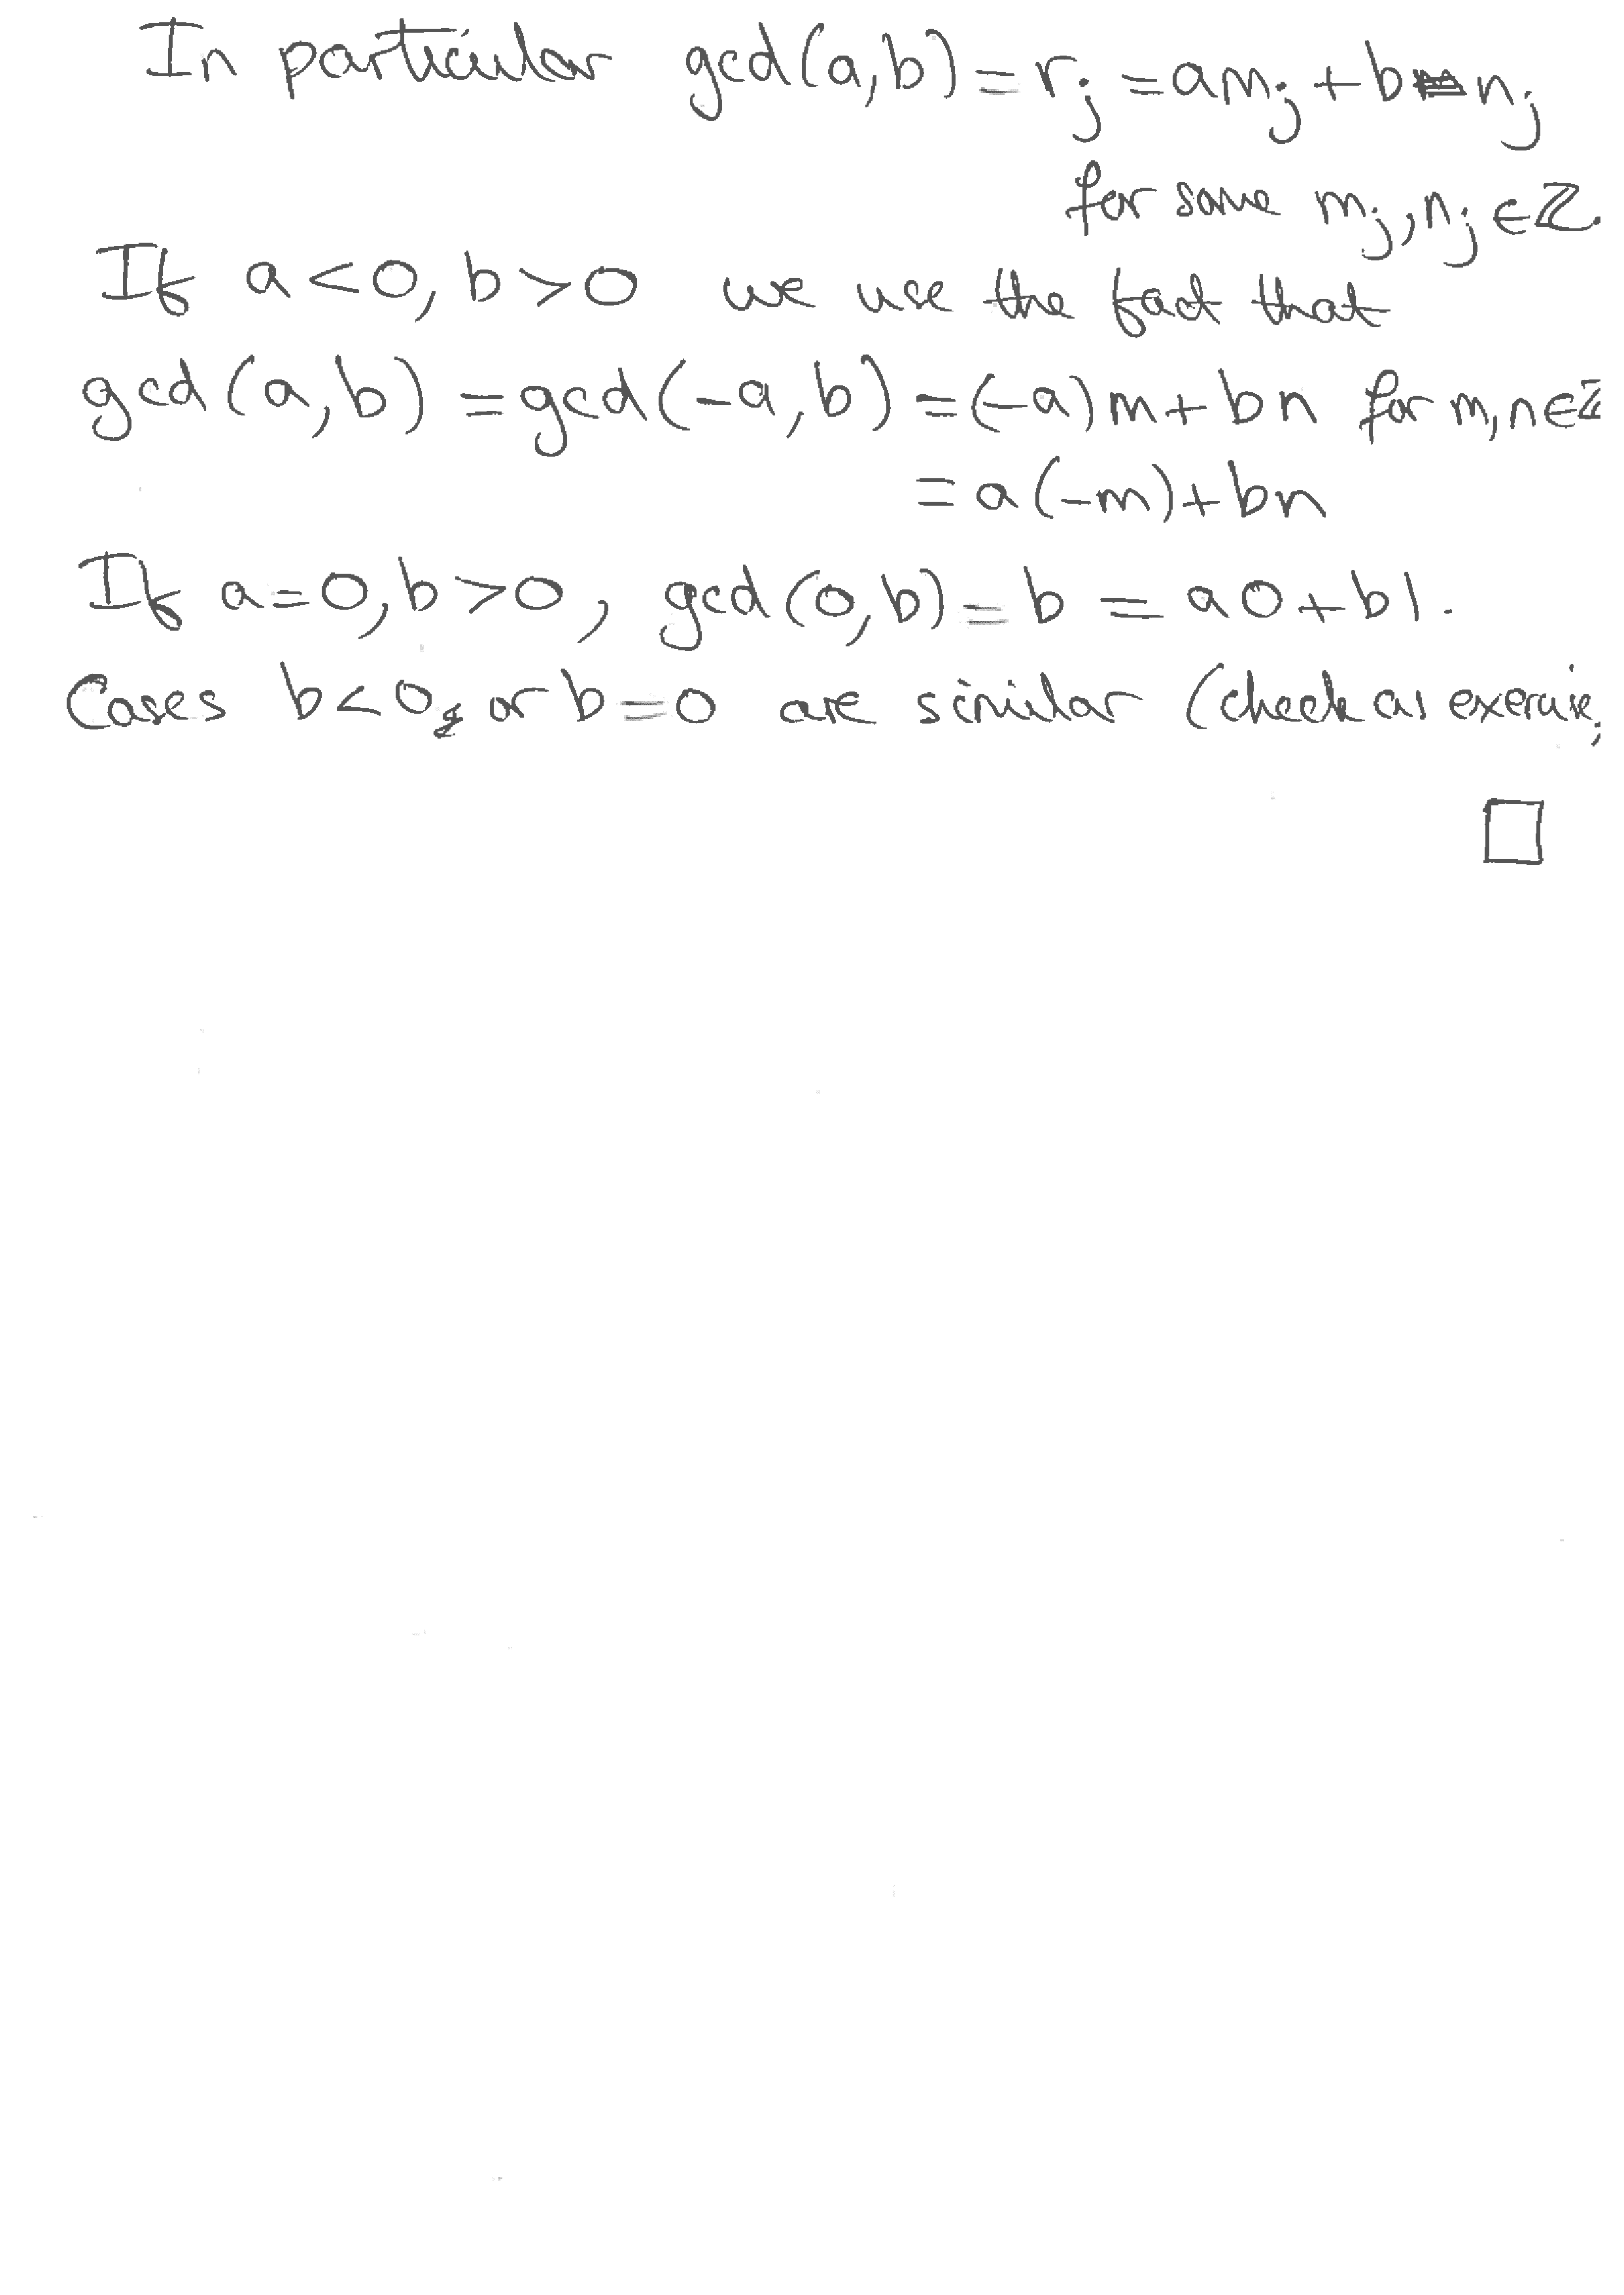 In particular gcd(a,b) = rⱼ = amⱼ + bnⱼ
for some mⱼ, nⱼ ∈ ℤ.
If a<0, b>0 we use the fact that
gcd(a,b) = gcd(-a,b) = (-a)m + bn for m,n∈ℤ
= a(-m)+bn
If a=0, b>0, gcd(0,b) = b = a0+b1.
Cases b<0, or b=0 are similar (check as exercise)